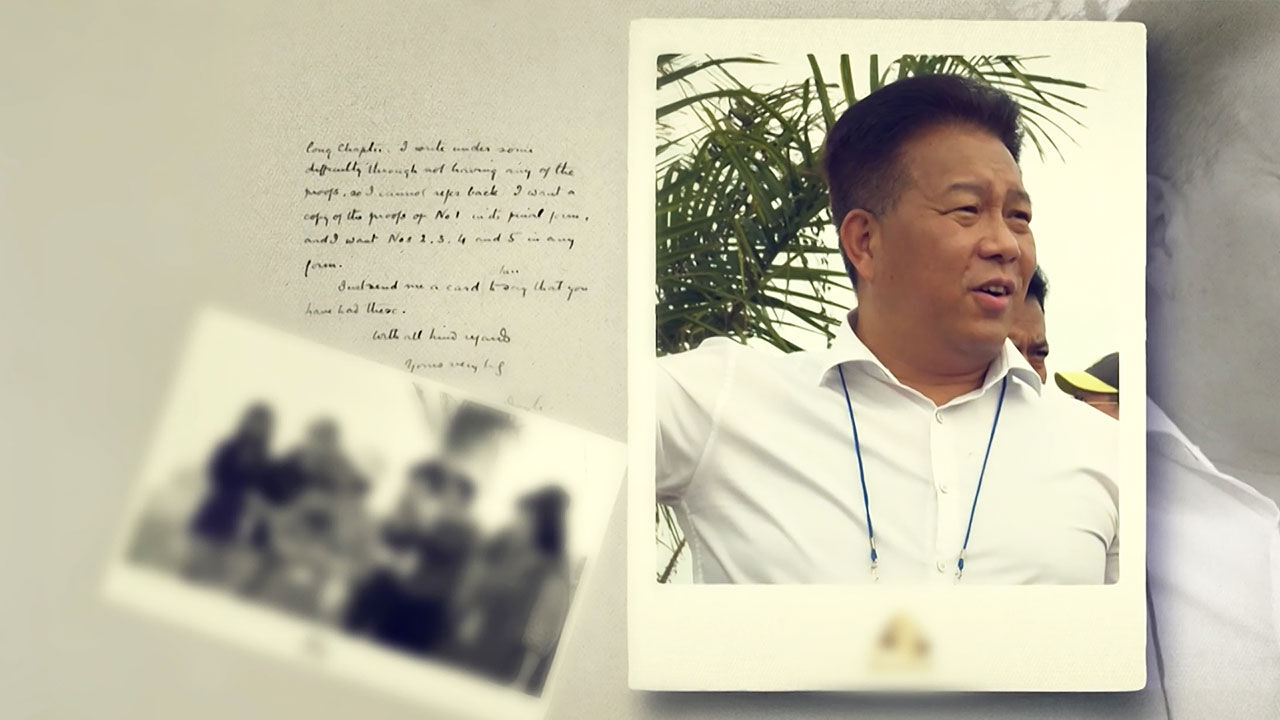 long Chapter. I write under some
difficulty through not having any of the
proofs. so I cannot refer back. I want a
copy of the proofs of No 1 in its final form,
and I want Nos 2, 3, 4 and 5 in any
form.
send me a card to say that you
have had these.
With all kind regards
Yours very